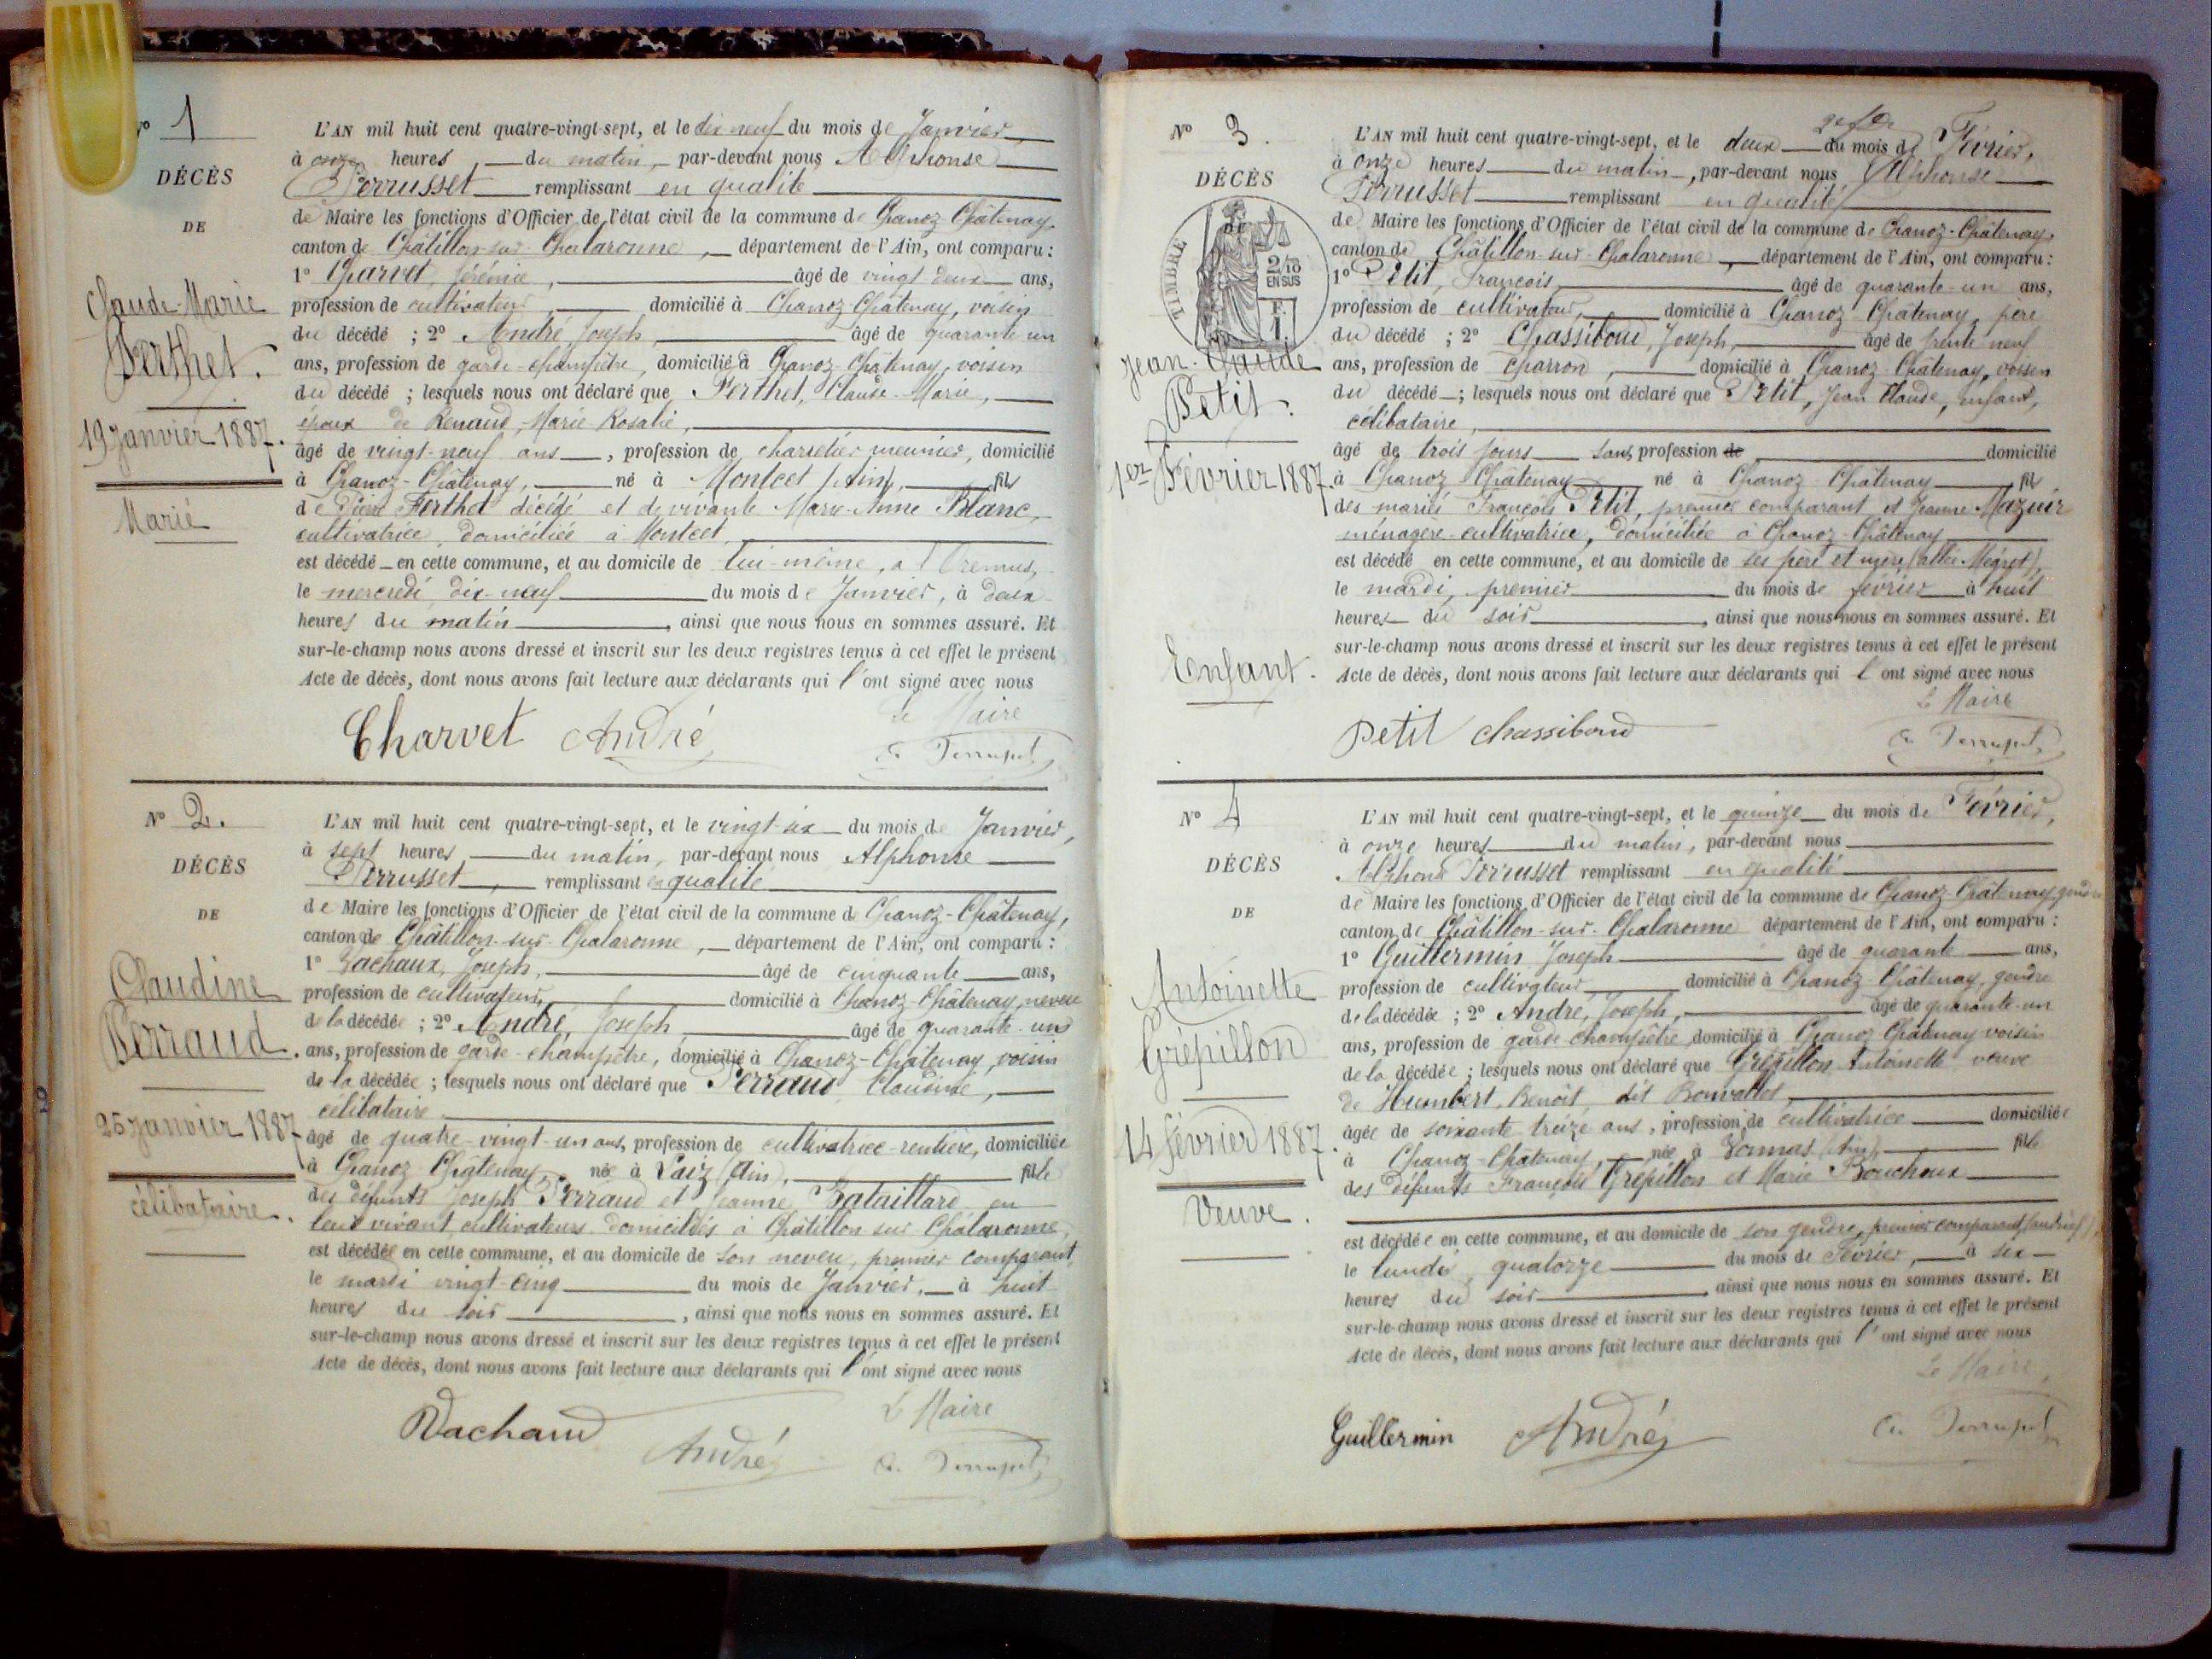 N° 1
DÉCÈS
DE
Claude-Marie
Perthet.
19 Janvier 1887.
Marié
L'AN mil huit cent quatre-vingt-sept, et le dix-neuf du mois de Janvier
à onze heures, du matin, par-devant nous Alphonse
Perrusset remplissant en qualité
de Maire les fonctions d'Officier de l'état civil de la commune de Chanoz-Châtenay,
canton de Châtillon-sur-Chalaronne, département de l'Ain, ont comparu :
1° Charvet, Jérémie, âgé de vingt deux ans,
profession de cultivateur domicilié à Chanoz-Châtenay, voisin
du décédé ; 2° André, Joseph, âgé de quarante un
ans, profession de garde-champêtre, domicilié à Chanoz-Châtenay, voisin
du décédé ; lesquels nous ont déclaré que Perthet, Claude-Marie,
époux de Renaud, Marie-Rosalie,
âgé de vingt-neuf ans, profession de charretier meunier, domicilié
à Chanoz-Châtenay, né à Montcet (Ain), fils
de Pierre Perthet décédé et de vivante Marie-Anne Blanc,
cultivatrice, domiciliée à Montcet,
est décédé en cette commune, et au domicile de lui-même, à
le mercredi dix-neuf du mois de Janvier, à deux
heures du matin, ainsi que nous nous en sommes assuré. Et
sur-le-champ nous avons dressé et inscrit sur les deux registres tenus à cet effet le présent
Acte de décès, dont nous avons fait lecture aux déclarants qui l'ont signé avec nous
Le Maire
Charvet André A. Perrusset
N° 2.
DÉCÈS
DE
Claudine
Perraud.
25 Janvier 1887
célibataire.
L'AN mil huit cent quatre-vingt-sept, et le vingt-six du mois de Janvier,
à sept heures, du matin, par-devant nous Alphonse
Perrusset, remplissant en qualité
de Maire les fonctions d'Officier de l'état civil de la commune de Chanoz-Châtenay,
canton de Châtillon-sur-Chalaronne, département de l'Ain, ont comparu :
1° Vachaux, Joseph, âgé de cinquante ans,
profession de cultivateur, domicilié à Chanoz-Châtenay, neveu
de la décédée ; 2° André, Joseph âgé de quarante-un
ans, profession de garde-champêtre, domicilié à Chanoz-Châtenay, voisin
de la décédée ; lesquels nous ont déclaré que Perraud, Claudine,
célibataire
âgé de quatre-vingt-un ans, profession de cultivatrice-rentière, domiciliée
à Chanoz Châtenay née à (Ain), fille
des défunts Joseph Perraud et Jeanne Bataillard en
leur vivant cultivateurs domiciliés à Châtillon sur Chalaronne,
est décédée en cette commune, et au domicile de son neveu, premier comparant,
le mardi vingt-cinq du mois de Janvier, à huit
heures du soir, ainsi que nous nous en sommes assuré. Et
sur-le-champ nous avons dressé et inscrit sur les deux registres tenus à cet effet le présent
Acte de décès, dont nous avons fait lecture aux déclarants qui l'ont signé avec nous
Le Maire
Vachaud André A. Perrusset
N° 3.
DÉCÈS
DE
TIMBRE
2/10
EN SUS
F.
1
Jean-Claude
Petit.
1er Février 1887.
Enfant.
L'AN mil huit cent quatre-vingt-sept, et le deux du mois de Février,
à onze heures du matin, par-devant nous Alphonse
Perrusset remplissant en qualité
de Maire les fonctions d'Officier de l'état civil de la commune de Chanoz-Châtenay,
canton de Châtillon-sur-Chalaronne, département de l'Ain, ont comparu :
1° Petit, François, âgé de quarante-un ans,
profession de cultivateur, domicilié à Chanoz Châtenay, père
du décédé ; 2° Chassiboud, Joseph, âgé de trente neuf
ans, profession de charron, domicilié à Chanoz-Châtenay, voisin
du décédé ; lesquels nous ont déclaré que Petit, Jean Claude, enfant,
célibataire,
âgé de trois jours sans profession de domicilié
à Chanoz Châtenay né à Chanoz-Châtenay fils
des mariés François Petit, premier comparant et Jeanne Mazuir
ménagère-cultivatrice, domiciliée à Chanoz-Châtenay
est décédé en cette commune, et au domicile de ses père et mère
le mardi, premier du mois de février à huit
heures du soir, ainsi que nous nous en sommes assuré. Et
sur-le-champ nous avons dressé et inscrit sur les deux registres tenus à cet effet le présent
Acte de décès, dont nous avons fait lecture aux déclarants qui l'ont signé avec nous
Le Maire
Petit chassiboud A. Perrusset
N° 4
DÉCÈS
DE
Antoinette
Grépillon
14 février 1887.
Veuve.
L'AN mil huit cent quatre-vingt-sept, et le quinze du mois de Février,
à onze heures du matin, par-devant nous
Alphonse Perrusset remplissant en qualité
de Maire les fonctions d'Officier de l'état civil de la commune de Chanoz-Châtenay, gendre
canton de Châtillon-sur-Chalaronne département de l'Ain, ont comparu :
1° Guillermin Joseph âgé de quarante ans,
profession de cultivateur domicilié à Chanoz-Châtenay, gendre
de la décédée ; 2° André, Joseph, âgé de quarante-un
ans, profession de garde champêtre domicilié à Chanoz Châtenay voisin
de la décédée ; lesquels nous ont déclaré que Grépillon Antoinette veuve
de Humbert, Benoit, dit Bonvallet,
âgée de soixante-treize ans, profession de cultivatrice domiciliée
à Chanoz-Châtenay, née à Vonnas (Ain), fille
des défunts François Grépillon et Marie Bouchoux
est décédée en cette commune, et au domicile de son gendre, premier comparant
le lundi, quatorze du mois de Février, à six
heures du soir, ainsi que nous nous en sommes assuré. Et
sur-le-champ nous avons dressé et inscrit sur les deux registres tenus à cet effet le présent
Acte de décès, dont nous avons fait lecture aux déclarants qui l'ont signé avec nous
Le Maire,
Guillermin André A. Perrusset